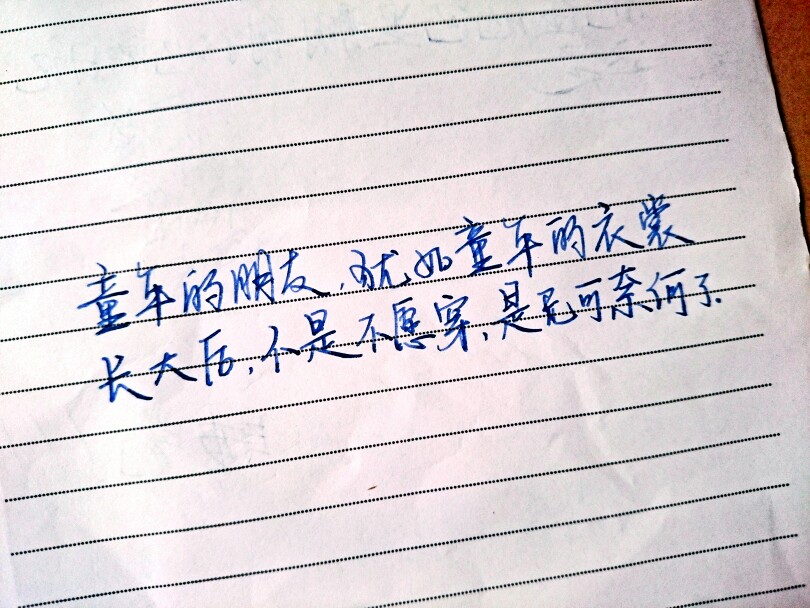 童年的朋友，犹如童年的衣裳
长大后，不是不愿穿，是无可奈何了.